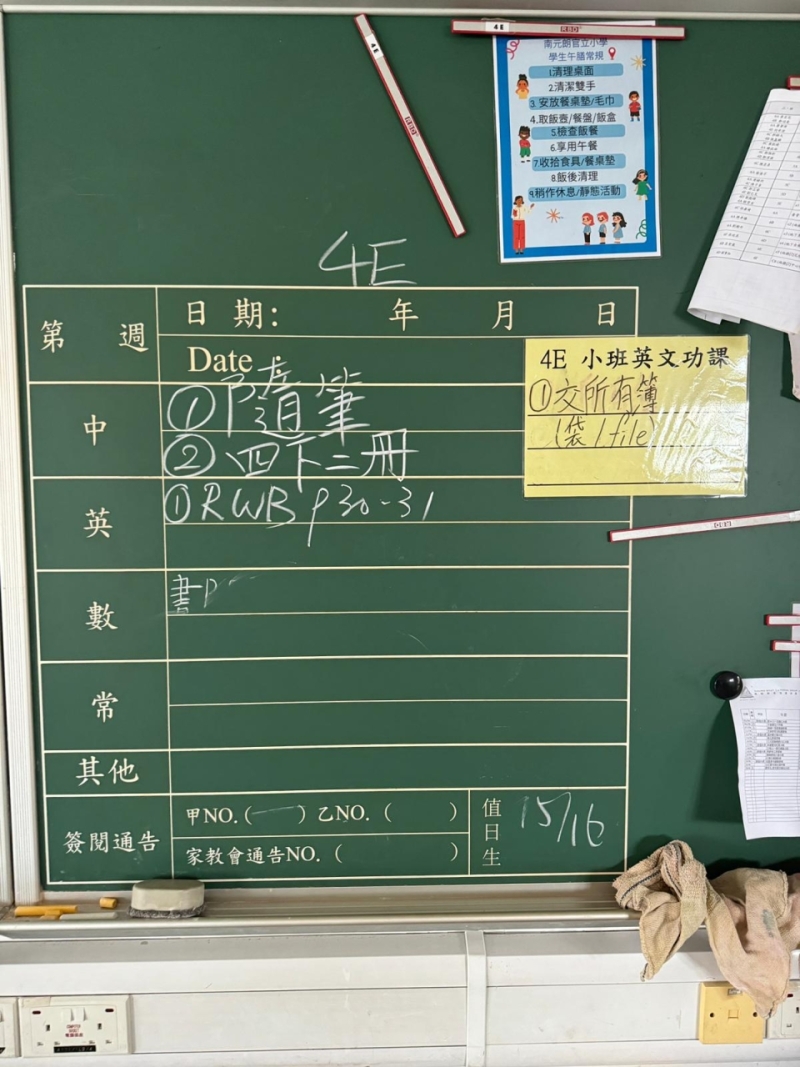 4E
MBO
4E
南元朗官立小學
學生午膳常規
1清理桌面
2.清潔雙手
3. 安放餐桌墊/毛巾
4.取飯壺/餐盤/飯盒
5.檢查飯餐
6.享用午餐
7.收拾食具/餐桌墊
8.飯後清理
9.稍作休息/靜態活動
4E
第 週
日 期: 年 月 日
Date
4E 小班英文功課
①交所有簿
(袋/file)
中
①隨筆
②四下二冊
英
①RWB p30-31
數
書p
常
其他
簽閱通告
甲NO.( ) 乙NO. ( )
家教會通告NO. ( )
值日生
15/16